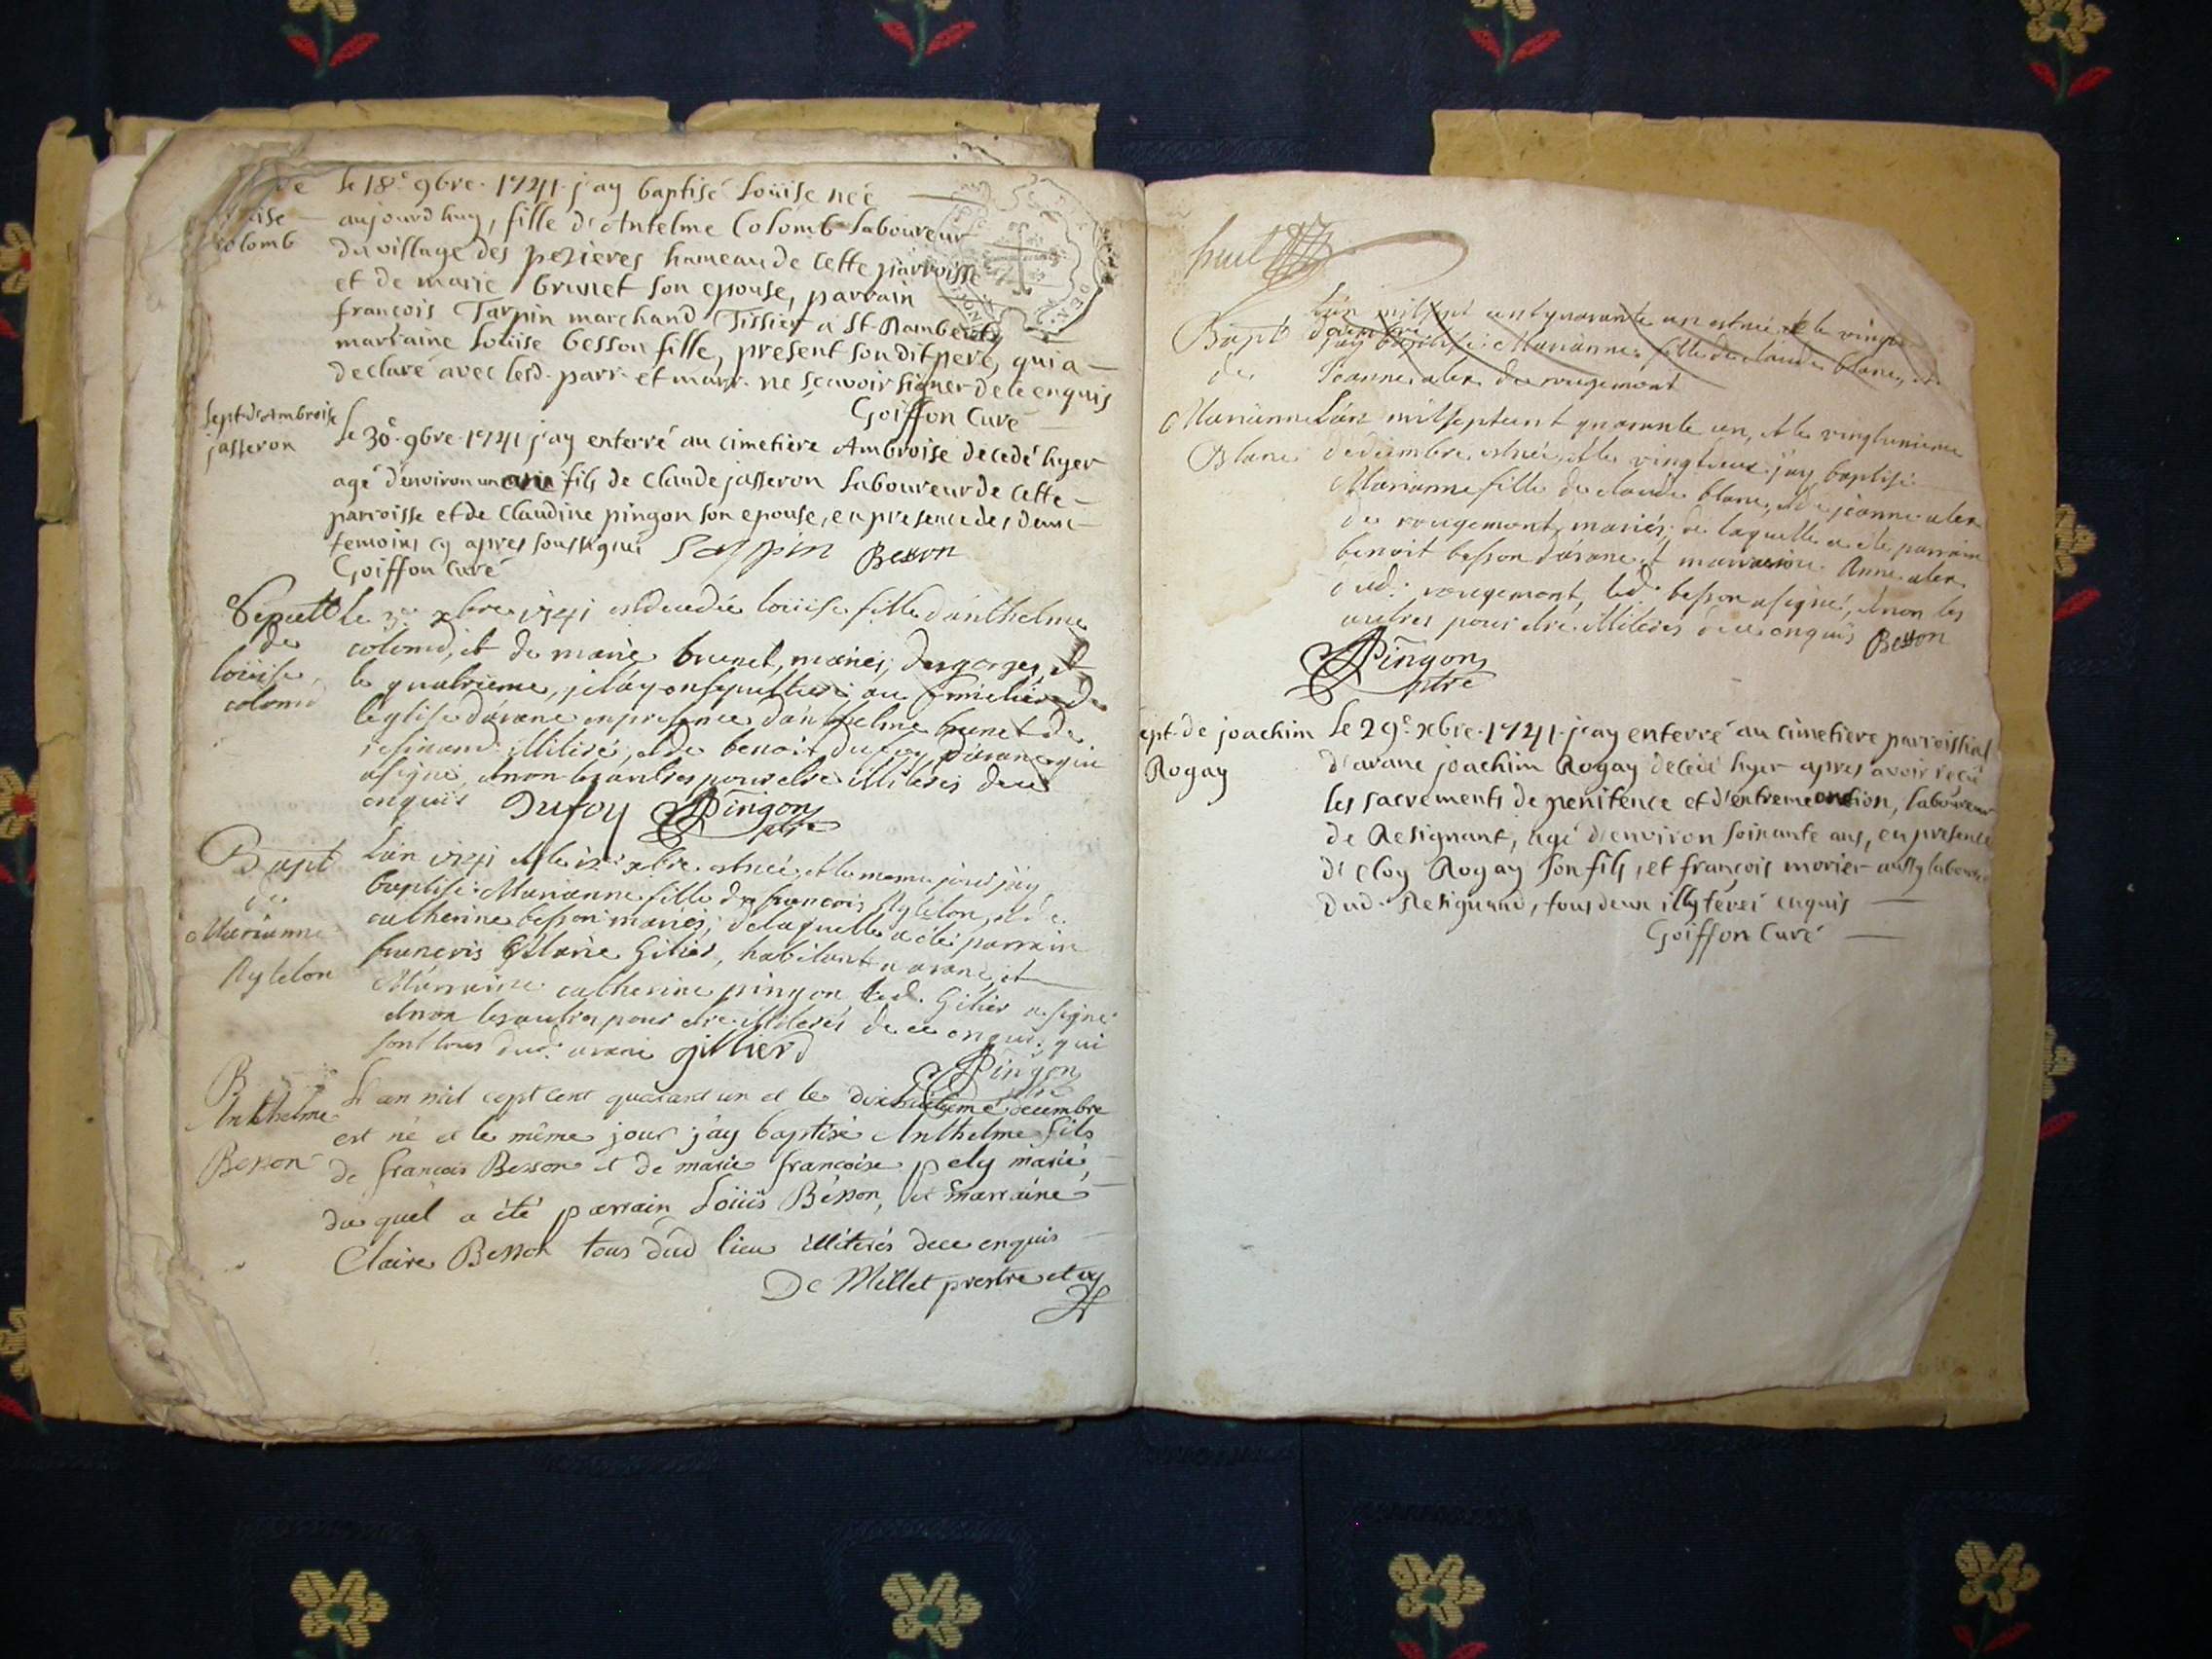 de
Louise
colomb
Le 18e 9bre. 1741 j'ay baptisé Loüise neé
aujourdhuy, fille d'Antelme Colomb Laboureur
du village des pezieres hameau de cette parroisse
et de marie brunet son epouse, parrain
françois Tarpin marchand Tissier a St Rambert
marraine Loüise besson fille, present son dit pere, qui a
declaré avec lesd. parr. et marr. ne sçavoir signer de ce enquis
Goiffon Curé
Sept. d'Ambroise
jasseron
Le 30e. 9bre. 1741 j'ay enterré au cimetiere Ambroise decedé hyer
agé d'environ un an fils de Claude jasseron Laboureur de cette
parroisse et de Claudine pingon son epouse, en presence des deux
temoins cy apres soussignés Sappin Besson
Goiffon Curé
Sepult
de
loüise
colomd
le 3e xbre 1741 est decedée loüise fille d'anthelme
colomd, et de marie brunet, mariés, desgorges, et
le quatrieme, je l'ay ensepulturé au Cimetiere de
l'eglise d'arane en presence d'anthelme brunet de
resinand illiteré, et de benoit dufoy d'arane qui
a signé, et non les autres pour etre illiterés de ce
enquis Dufoy Pingon
ptre
Bapt
de
Marianne
Aylelon
L'an 1741 et le 12e xbre est neé, et le meme jour j'ay
baptisé Marianne fille de francois Aylelon, et de
catherine besson mariés, de laquelle a été parrain
francois Marie Gilier, habitant a arane, et
Marraine catherine pingon led. Gilier a signé
et non les autres pour etre illiterés de ce enquis qui
sont tous dud. arane Gillierd
Pingon
ptre
B
Anthelme
Besson
L'an mil sept cent quarant un et le dixhuitieme decembre
est né et le même jour j'ay baptisé Anthelme fils
de françois Besson et de marie francoise pely mariés
du quel a été parrain Loüis Bésson, et marraine
Claire Besson tous dud lieu illiterés de ce enquis
De Millet prestre
huit
Bapt
de
Marianne
Blanc
L'an mil sept cent quarante un est neé et le vingt
decembre
j'ay baptisé Marianne fille de claude blanc, et
Jeanne aler de rougemont
L'an mil sept cent quarante un, et le vingtunieme
de decembre est neé, et le vingtdeux j'ay baptisé
Marianne fille de claude blanc, et de jeanne aler
de rougemont, mariés, de laquelle a été parrain
benoit besson d'arane, et marraine Anne aler
dud. rougemont, led. besson a signé, et non les
autres pour etre illiterés de ce enquis Besson
Pingon
ptre
Sept. de joachim
Rogay
Le 29e. xbre. 1741 j'ay enterré au cimetiere parroissial
d'arane joachim Rogay decedé hyer apres avoir reçu
les sacrements de penitence et d'extreme onction, laboureur
de Resignant, agé d'environ soixante ans, en presence
d'eloy Rogay son fils, et françois morier aussy laboureur
dud. Resignand, tous deux illyterés enquis
Goiffon Curé